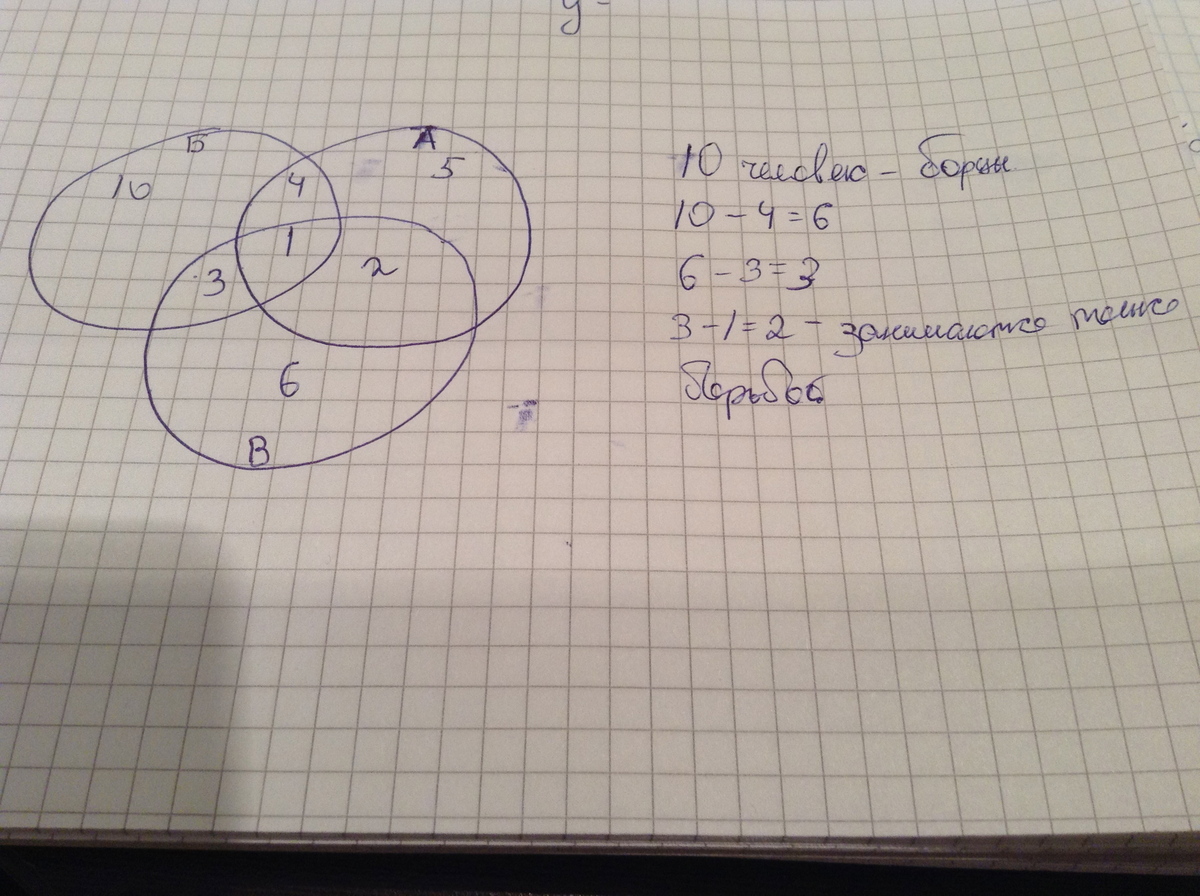 у-
Б
А
10
4
5
1
3
2
6
В
10 человек – борцы
10 – 4 = 6
6 – 3 = 3
3 – 1 = 2 – занимаются только
борьбой